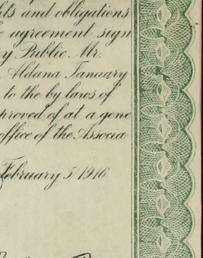 ts and obligations
e agreement sign
ry Public. Mr.
Aldana January
to the by laws of
proved of at a gene
office of the Associa
February 5 1916